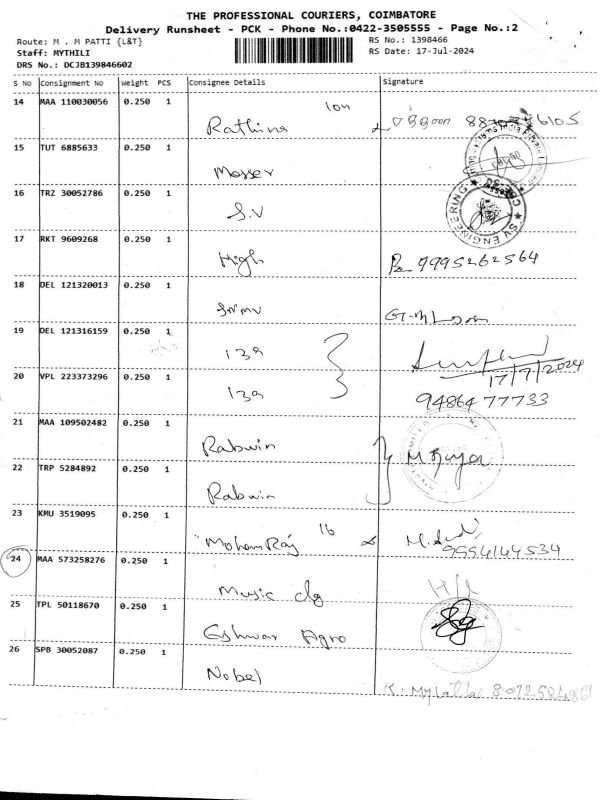 THE PROFESSIONAL COURIERS, COIMBATORE
Delivery Runsheet - PCK - Phone No.:0422-3505555 - Page No.:2
Route: M . M PATTI {L&T} RS No.: 1398466
Staff: MYTHILI RS Date: 17-Jul-2024
DRS No.: DCJB139846602
S No Consignment No Weight PCS Consignee Details Signature
14 MAA 110030056 0.250 1 Rathina
15 TUT 6885633 0.250 1 Messer
16 TRZ 30052786 0.250 1 S.V
SV ENGINEERING
17 RKT 9609268 0.250 1 High 9995262564
18 DEL 121320013 0.250 1
19 DEL 121316159 0.250 1 139
17/7/2024
20 VPL 223373296 0.250 1 139 9486477733
21 MAA 109502482 0.250 1 Rabwin
22 TRP 5284892 0.250 1 Rabwin
23 KMU 3519095 0.250 1 MohanRaj 16 9994144534
24 MAA 573258276 0.250 1 Music clg
25 TPL 50118670 0.250 1 Eshwar Agro
26 SPB 30052087 0.250 1 Nobel